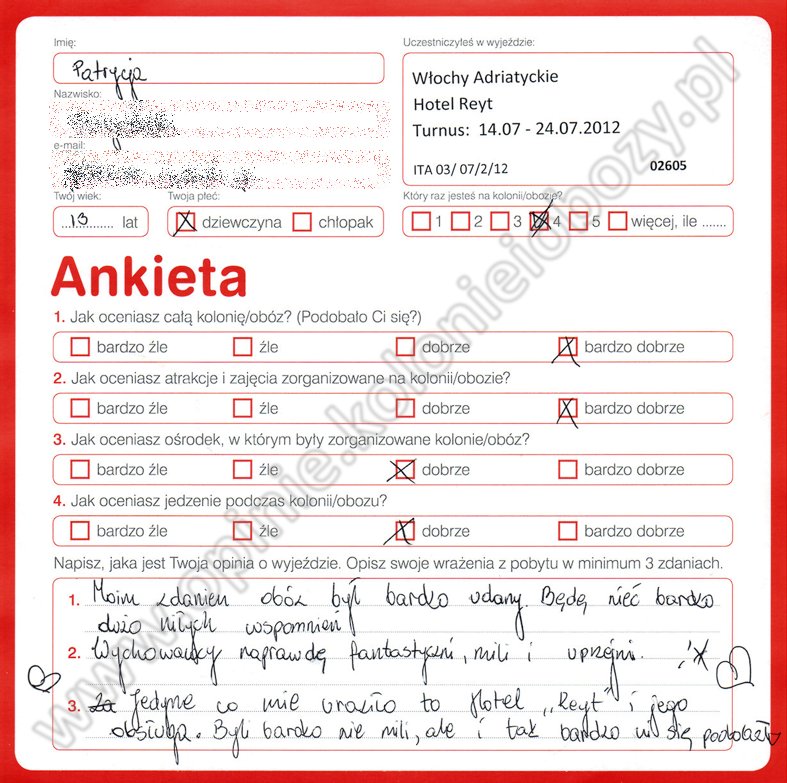 Imię:
Patrycja
Nazwisko:
e-mail:
Twój wiek:
13 lat
Twoja płeć:
dziewczyna chłopak
Uczestniczyłeś w wyjeździe:
Włochy Adriatyckie
Hotel Reyt
Turnus: 14.07 - 24.07.2012
ITA 03/ 07/2/12 02605
Który raz jesteś na kolonii/obozie?
1 2 3 4 5 więcej, ile .......
Ankieta
1. Jak oceniasz całą kolonię/obóz? (Podobało Ci się?)
bardzo źle źle dobrze bardzo dobrze
2. Jak oceniasz atrakcje i zajęcia zorganizowane na kolonii/obozie?
bardzo źle źle dobrze bardzo dobrze
3. Jak oceniasz ośrodek, w którym były zorganizowane kolonie/obóz?
bardzo źle źle dobrze bardzo dobrze
4. Jak oceniasz jedzenie podczas kolonii/obozu?
bardzo źle źle dobrze bardzo dobrze
Napisz, jaka jest Twoja opinia o wyjeździe. Opisz swoje wrażenia z pobytu w minimum 3 zdaniach.
1. Moim zdaniem obóz był bardzo udany. Będę mieć bardzo
dużo miłych wspomnień
2. Wychowawcy naprawdę fantastyczni, mili i uprzejmi.
3. Jedyne co mie uraziło to Hotel "Reyt" i jego
obsługa. Byli bardzo nie mili, ale i tak bardzo mi się podobało
www.opinie.kolonieiobozy.pl